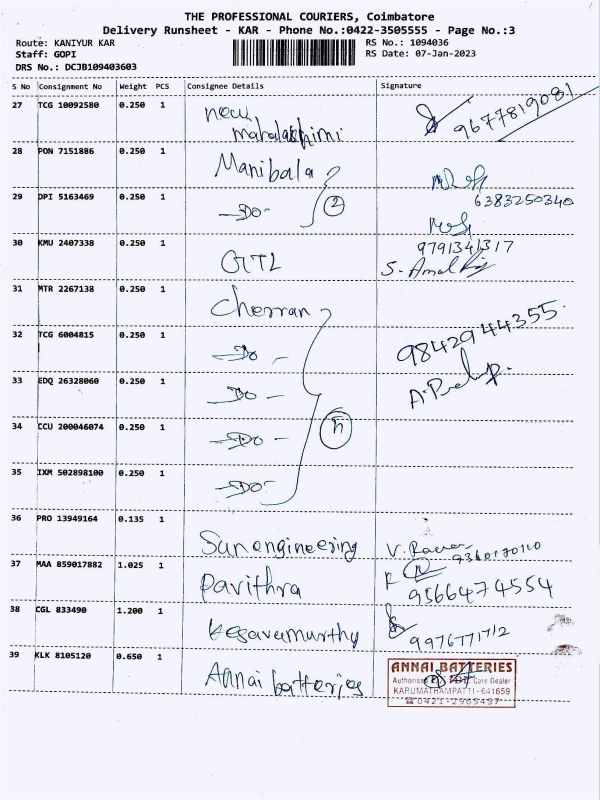 THE PROFESSIONAL COURIERS, Coimbatore
Delivery Runsheet - KAR - Phone No.:0422-3505555 - Page No.:3
Route: KANIYUR KAR RS No.: 1094036
Staff: GOPI RS Date: 07-Jan-2023
DRS No.: DCJB109403603
S No Consignment No Weight PCS Consignee Details Signature
27 TCG 10092580 0.250 1 New 9677819081
mahalakshimi
28 PON 7151886 0.250 1 Manibala
29 DPI 5163469 0.250 1 -Do- 2 6383250340
30 KMU 2407338 0.250 1 GTL 9791341317
S. Amal Raj
31 MTR 2267138 0.250 1 Cherran
32 TCG 6004815 0.250 1 -Do- 9842944355
33 EDQ 26328060 0.250 1 -Do-
34 CCU 200046074 0.250 1 -Do-
35 IXM 502898100 0.250 1 -Do-
36 PRO 13949164 0.135 1 Sun engineering V.
37 MAA 859017882 1.025 1 Pavithra 9566474554
38 CGL 833490 1.200 1 Kesavamurthy 9976771712
39 KLK 8105120 0.650 1 Annai batteries
ANNAI BATTERIES
Care Dealer
KARUMATHAMPATTI - 641659